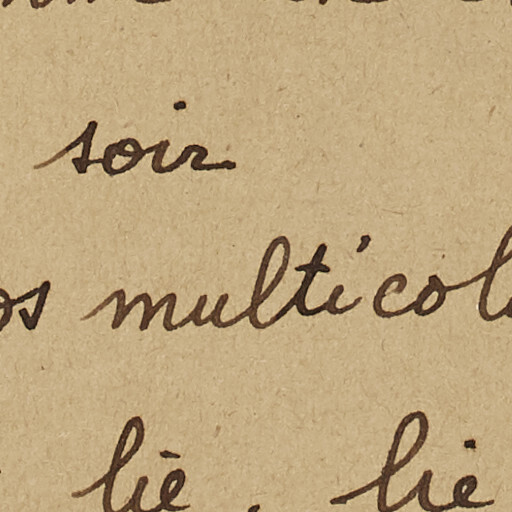 soir
os multicol
lié. lie